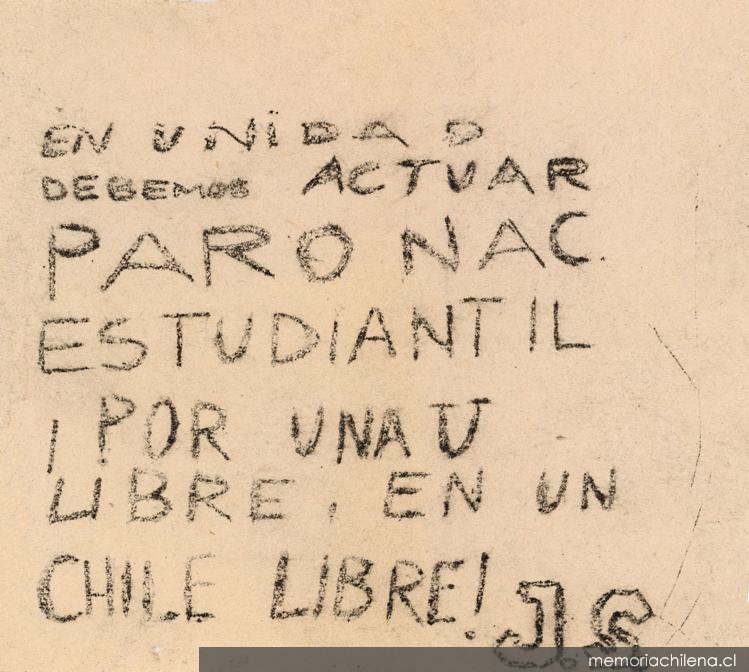 EN UNiDAD
DEBEMOS ACTUAR
PARO NAC.
ESTUDIANTIL
¡POR UNA U
LIBRE, EN UN
CHILE LIBRE!
JS
memoriachilena.cl